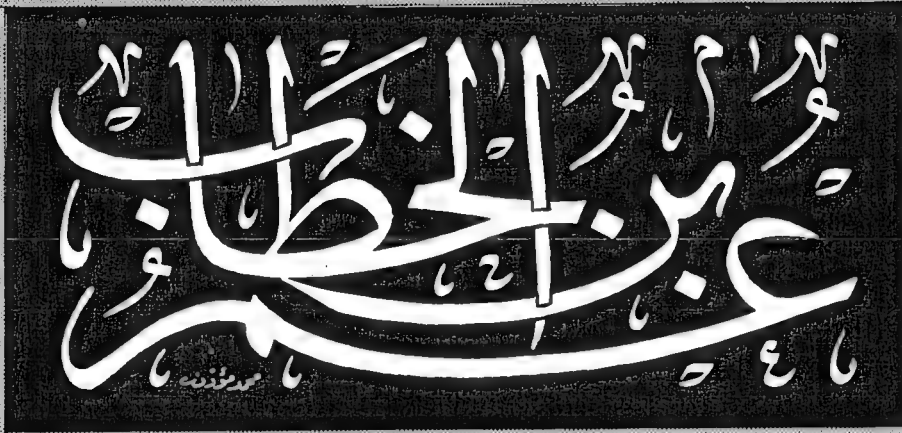 عمر بن الخطاب